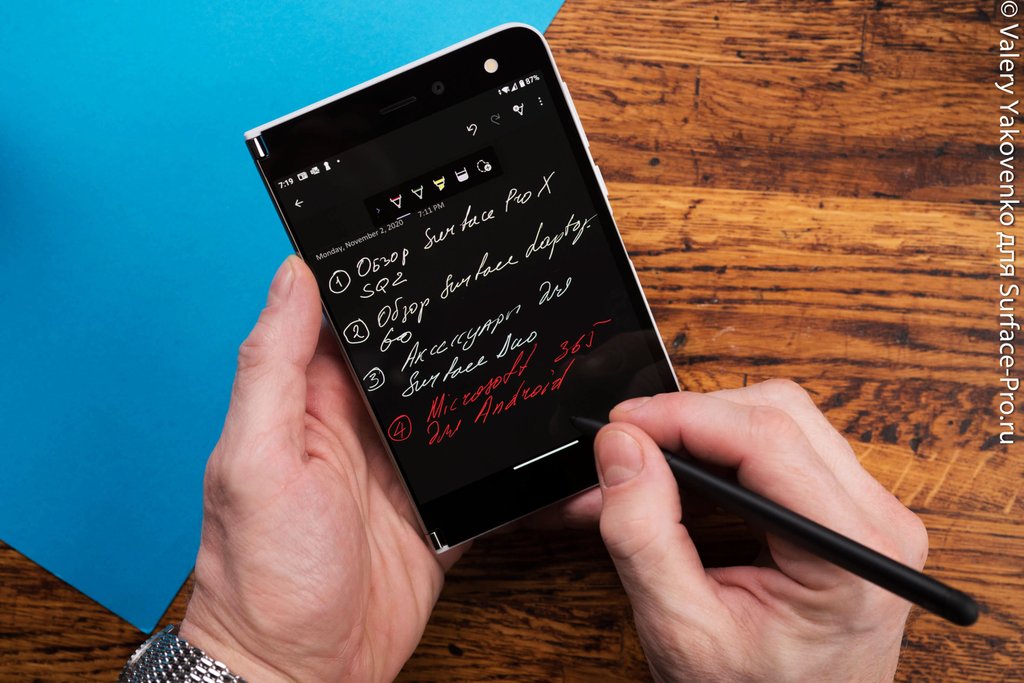 7:19
87%
Monday, November 2, 2020 7:11 PM
① Обзор Surface Pro X
SQ2
② Обзор Surface Laptop
Go
③ Аксессуары для
Surface Duo
④ Microsoft 365
для Android
© Valery Yakovenko для Surface-Pro.ru